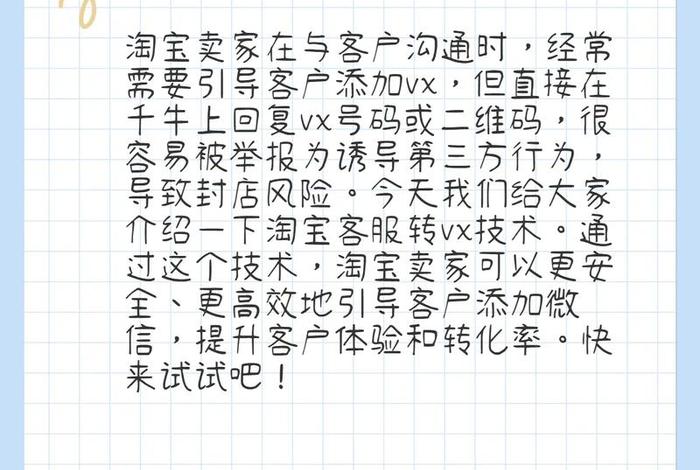 淘宝卖家在与客户沟通时，经常
需要引导客户添加vx，但直接在
千牛上回复vx号码或二维码，很
容易被举报为诱导第三方行为，
导致封店风险。今天我们给大家
介绍一下淘宝客服转vx技术。通
过这个技术，淘宝卖家可以更安
全、更高效地引导客户添加微
信，提升客户体验和转化率。快
来试试吧！